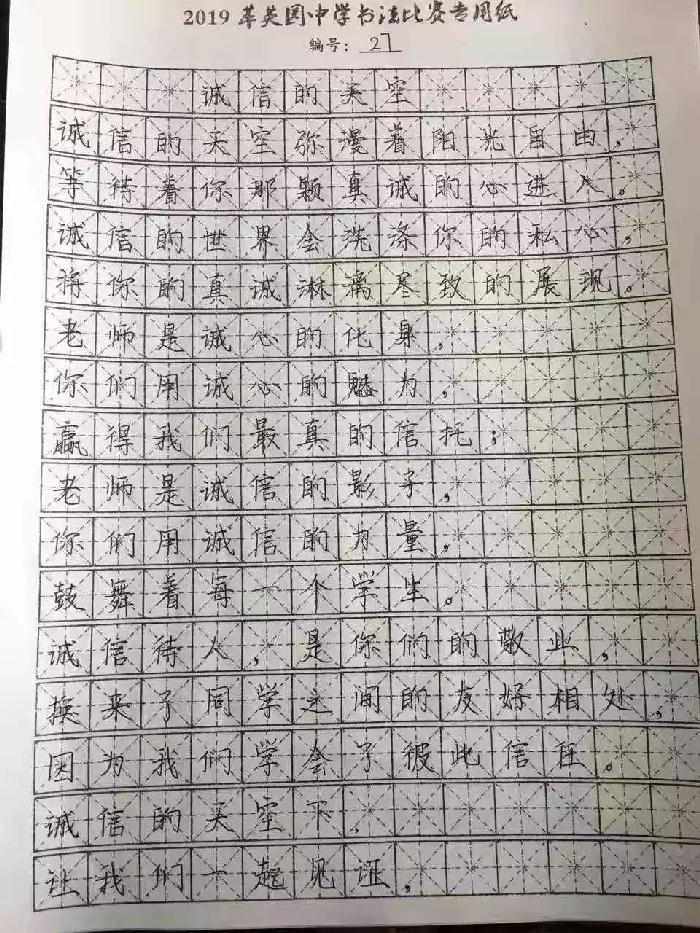 2019革英园中学书法比赛专用纸
编号：27
诚信的天空
诚信的天空弥漫着阳光自由，
等待着你那颗真诚的心进入。
诚信的世界会洗涤你的私心，
将你的真诚淋漓尽致的展现。
老师是诚心的化身，
你们用诚心的魅力，
赢得我们最真的信托；
老师是诚信的影子，
你们用诚信的力量，
鼓舞着每一个学生。
诚信待人，是你们的敬业，
换来了同学之间的友好相处，
因为我们学会了彼此信任。
诚信的天空下，
让我们一起见证，